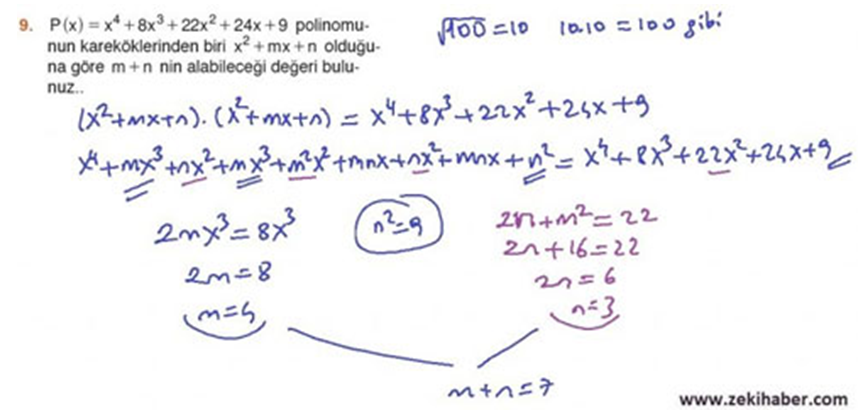 9. P(x) = x⁴ + 8x³ + 22x² + 24x + 9 polinomu-
nun kareköklerinden biri x² + mx + n olduğu-
na göre m + n nin alabileceği değeri bulu-
nuz..
√100 = 10 10.10 = 100 gibi
(x²+mx+n).(x²+mx+n) = x⁴+8x³+22x²+24x+9
x⁴+mx³+nx²+mx³+m²x²+mnx+nx²+mnx+n² = x⁴+8x³+22x²+24x+9
2mx³=8x³ n²=9 2n+m²=22
2m=8 2n+16=22
m=4 2n=6
n=3
m+n=7
www.zekihaber.com